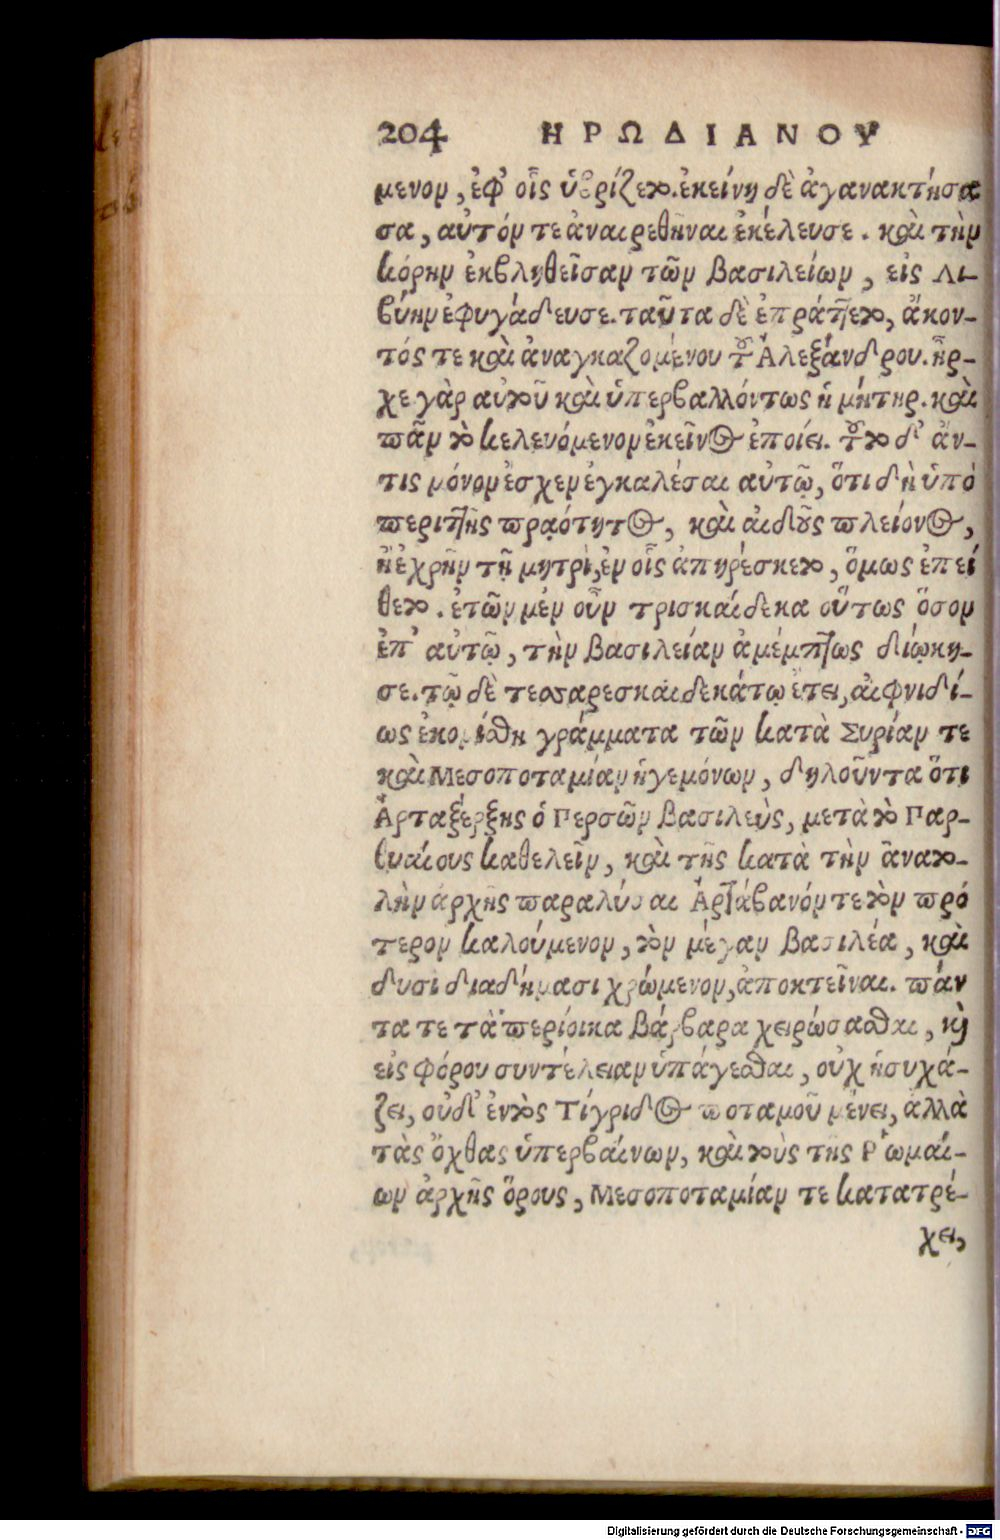 204 ΗΡΩΔΙΑΝΟΥ
μενον, ἐφ᾽ οἷς ὑβρίζετο. ἐκείνη δὲ ἀγανακτήσα
σα, αὐτόν τε ἀναιρεθῆναι ἐκέλευσε. καὶ τὴν
κόρην ἐκβληθεῖσαν τῶν βασιλείων, εἰς Λι-
βύην ἐφυγάδευσε. ταῦτα δὲ ἐπράττετο, ἄκον-
τός τε καὶ ἀναγκαζομένου τοῦ Ἀλεξάνδρου. ἦρ-
χε γὰρ αὐτοῦ καὶ ὑπερβαλλόντως ἡ μήτηρ. καὶ
πᾶν τὸ κελευόμενον ἐκεῖνος ἐποίει. τοῦτο δ᾽ ἄν-
τις μόνον ἔσχεν ἐγκαλέσαι αὐτῷ, ὅτι δὴ ὑπὸ
περιττῆς πραότητος, καὶ αἰδοῦς πλείονος,
ἢ ἐχρῆν τῇ μητρὶ, ἐν οἷς ἀπηρέσκετο, ὅμως ἐπεί
θετο. ἐτῶν μὲν οὖν τρισκαίδεκα οὕτως ὅσον
ἐπ᾽ αὐτῷ, τὴν βασιλείαν ἀμέμπτως διῴκη-
σε. τῷ δὲ τεσσαρεσκαιδεκάτῳ ἔτει, αἰφνιδί-
ως ἐκομίσθη γράμματα τῶν κατὰ Συρίαν τε
καὶ Μεσοποταμίαν ἡγεμόνων, δηλοῦντα ὅτι
Ἀρταξέρξης ὁ Περσῶν βασιλεὺς, μετὰ τὸ Παρ-
θυαίους καθελεῖν, καὶ τῆς κατὰ τὴν ἀνατο-
λὴν ἀρχῆς παραλύσαι Ἀρτάβανόν τε τὸν πρό
τερον καλούμενον, τὸν μέγαν βασιλέα, καὶ
δυσὶ διαδήμασι χρώμενον, ἀποκτεῖναι. πάν
τα τε τὰ περίοικα βάρβαρα χειρώσασθαι, καὶ
εἰς φόρου συντέλειαν ὑπάγεσθαι, οὐχ ἡσυχά-
ζει, οὐδ᾽ ἐντὸς Τίγριδος ποταμοῦ μένει, ἀλλὰ
τὰς ὄχθας ὑπερβαίνων, καὶ τοὺς τῆς Ῥωμαί-
ων ἀρχῆς ὅρους, Μεσοποταμίαν τε κατατρέ-
χει,
Digitalisierung gefördert durch die Deutsche Forschungsgemeinschaft - DFG